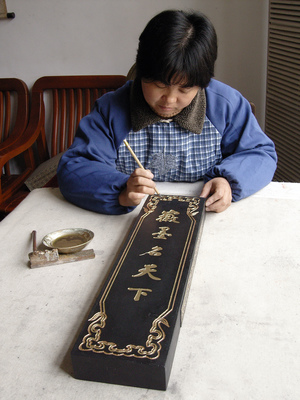 徽墨名天下